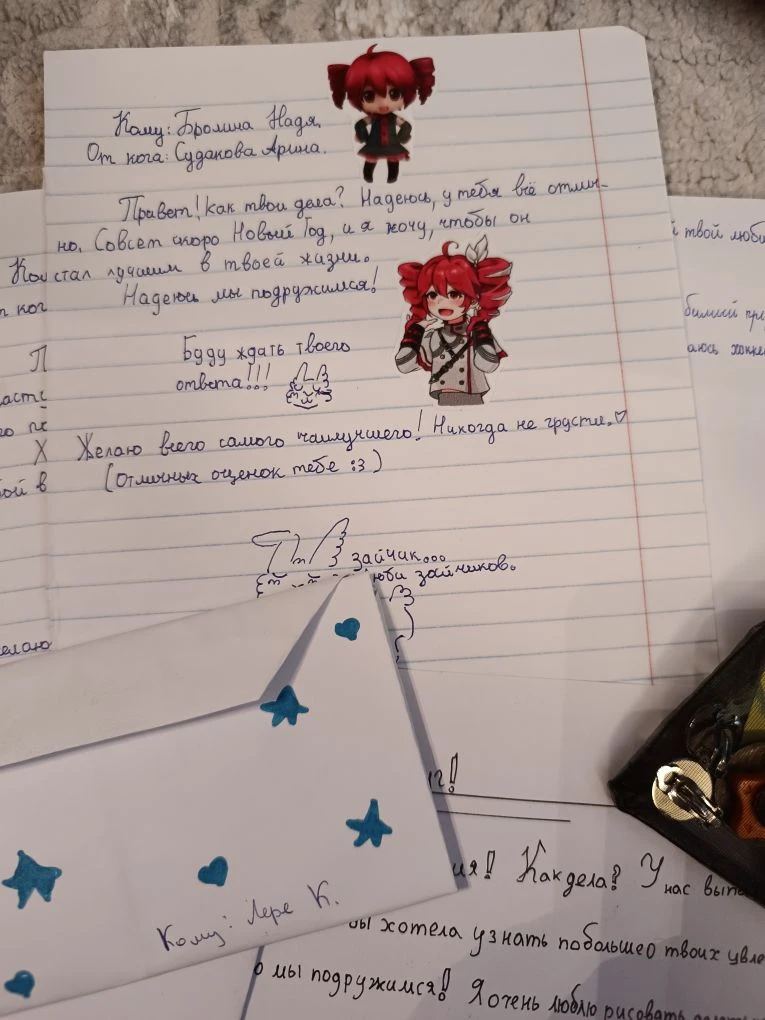 Кому: Бромина Надя.
От кога: Судакова Арина.
Привет! Как твои дела? Надеюсь, у тебя всё отлич-
но. Совсем скоро Новый Год, и я хочу, чтобы он
стал лучшим в твоей жизни.
Надеюсь мы подружимся!
Буду ждать твоего
ответа!!!
Желаю всего самого наилучшего! Никогда не грусти.♡
(Отличных оценок тебе :3)
зайчик...
юби зайчиков.
Кому: Лере К.
й твой люби
бимый пр
аюсь хокке
П
Х
ой в
елаю
г!
ия! Как дела? У нас выпа
ы хотела узнать побольше о твоих увле
о мы подружимся! Я очень люблю рисовать